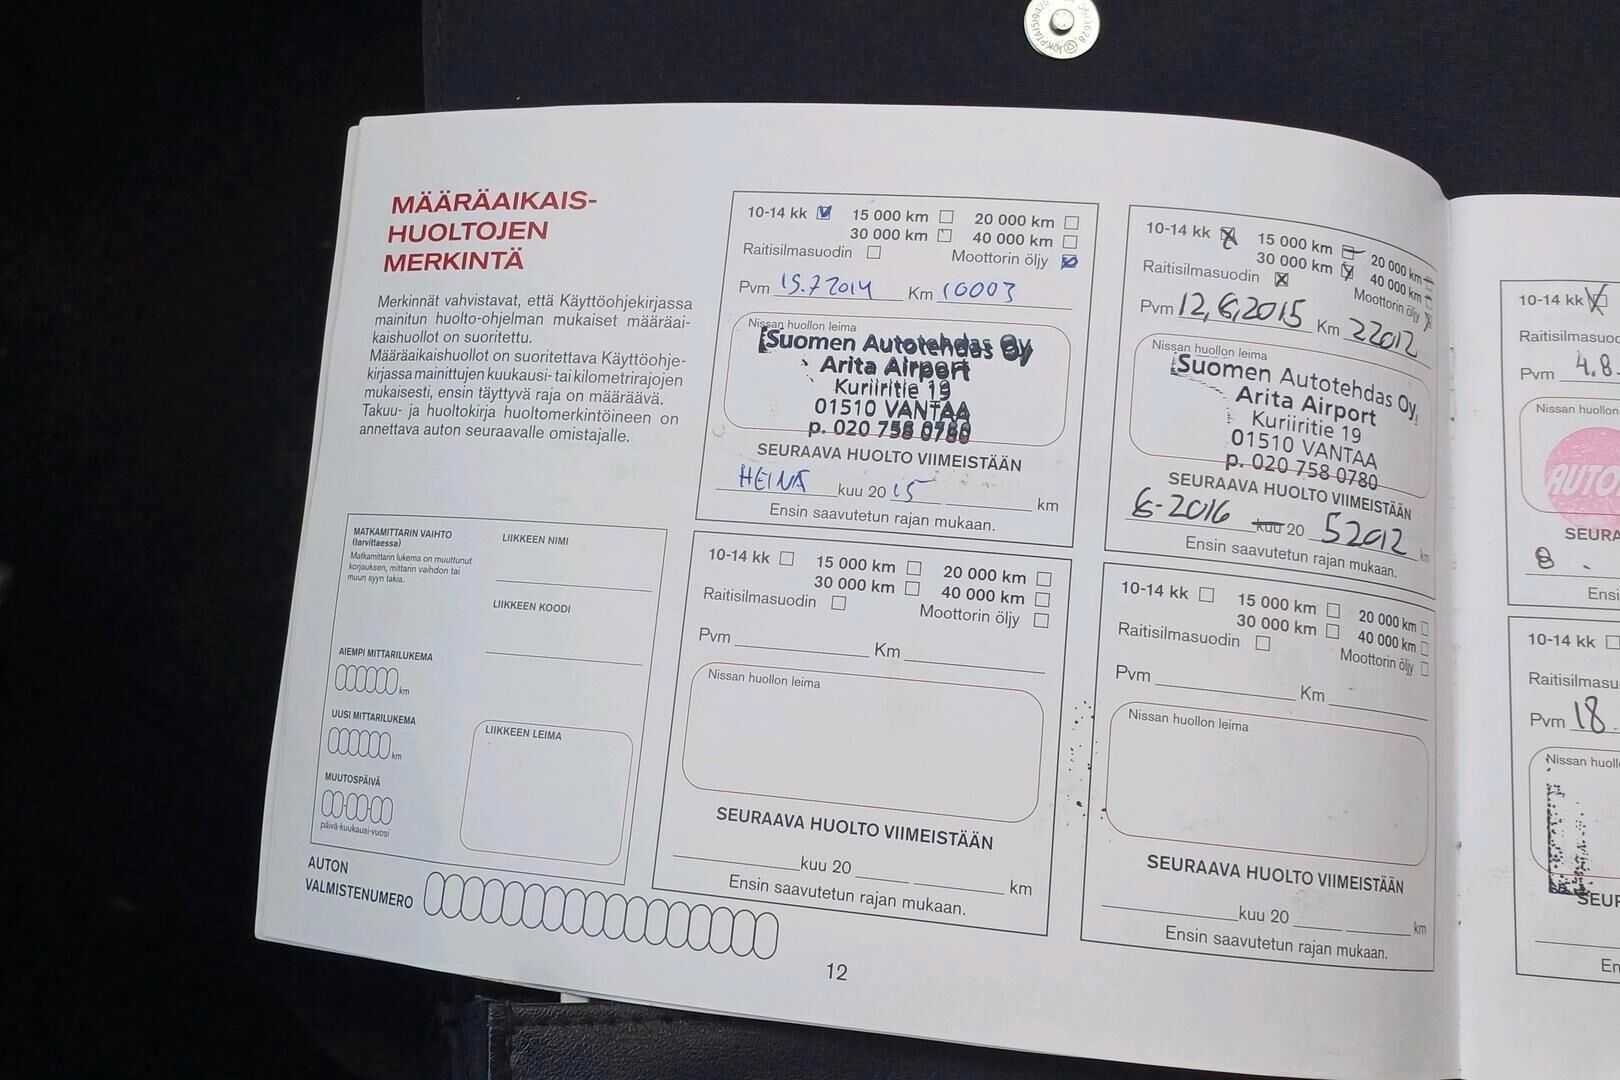 MÄÄRÄAIKAIS-
HUOLTOJEN
MERKINTÄ
Merkinnät vahvistavat, että Käyttöohjekirjassa
mainitun huolto-ohjelman mukaiset määräai-
kaishuollot on suoritettu.
Määräaikaishuollot on suoritettava Käyttöohje-
kirjassa mainittujen kuukausi- tai kilometrirajojen
mukaisesti, ensin täyttyvä raja on määräävä.
Takuu- ja huoltokirja huoltomerkintöineen on
annettava auton seuraavalle omistajalle.
MATKAMITTARIN VAIHTO
(tarvittaessa)
Matkamittarin lukema on muuttunut
korjauksen, mittarin vaihdon tai
muun syyn takia.
LIIKKEEN NIMI
LIIKKEEN KOODI
AIEMPI MITTARILUKEMA
km
UUSI MITTARILUKEMA
km
MUUTOSPÄIVÄ
päivä-kuukausi-vuosi
LIIKKEEN LEIMA
AUTON
VALMISTENUMERO
10-14 kk 15 000 km 20 000 km
30 000 km 40 000 km
Raitisilmasuodin Moottorin öljy
Pvm 15.7.2014 Km 10003
Nissan huollon leima
Suomen Autotehdas Oy
Arita Airport
Kuriiritie 19
01510 VANTAA
p. 020 758 0780
SEURAAVA HUOLTO VIIMEISTÄÄN
HEINÄ kuu 20 15 km
Ensin saavutetun rajan mukaan.
10-14 kk 15 000 km 20 000 km
30 000 km 40 000 km
Raitisilmasuodin Moottorin öljy
Pvm 12,6,2015 Km 22012
Nissan huollon leima
Suomen Autotehdas Oy
Arita Airport
Kuriiritie 19
01510 VANTAA
p. 020 758 0780
SEURAAVA HUOLTO VIIMEISTÄÄN
6-2016 kuu 20 52012 km
Ensin saavutetun rajan mukaan.
10-14 kk 15 000 km 20 000 km
30 000 km 40 000 km
Raitisilmasuodin Moottorin öljy
Pvm Km
Nissan huollon leima
SEURAAVA HUOLTO VIIMEISTÄÄN
kuu 20 km
Ensin saavutetun rajan mukaan.
10-14 kk 15 000 km 20 000 km
30 000 km 40 000 km
Raitisilmasuodin Moottorin öljy
Pvm Km
Nissan huollon leima
SEURAAVA HUOLTO VIIMEISTÄÄN
kuu 20 km
Ensin saavutetun rajan mukaan.
12
10-14 kk
Raitisilmasuod
Pvm 4.8.
Nissan huollon
AUTO
SEURA
8.
Ensi
10-14 kk
Raitisilmasu
Pvm 18.
Nissan huoll
SEUR
En